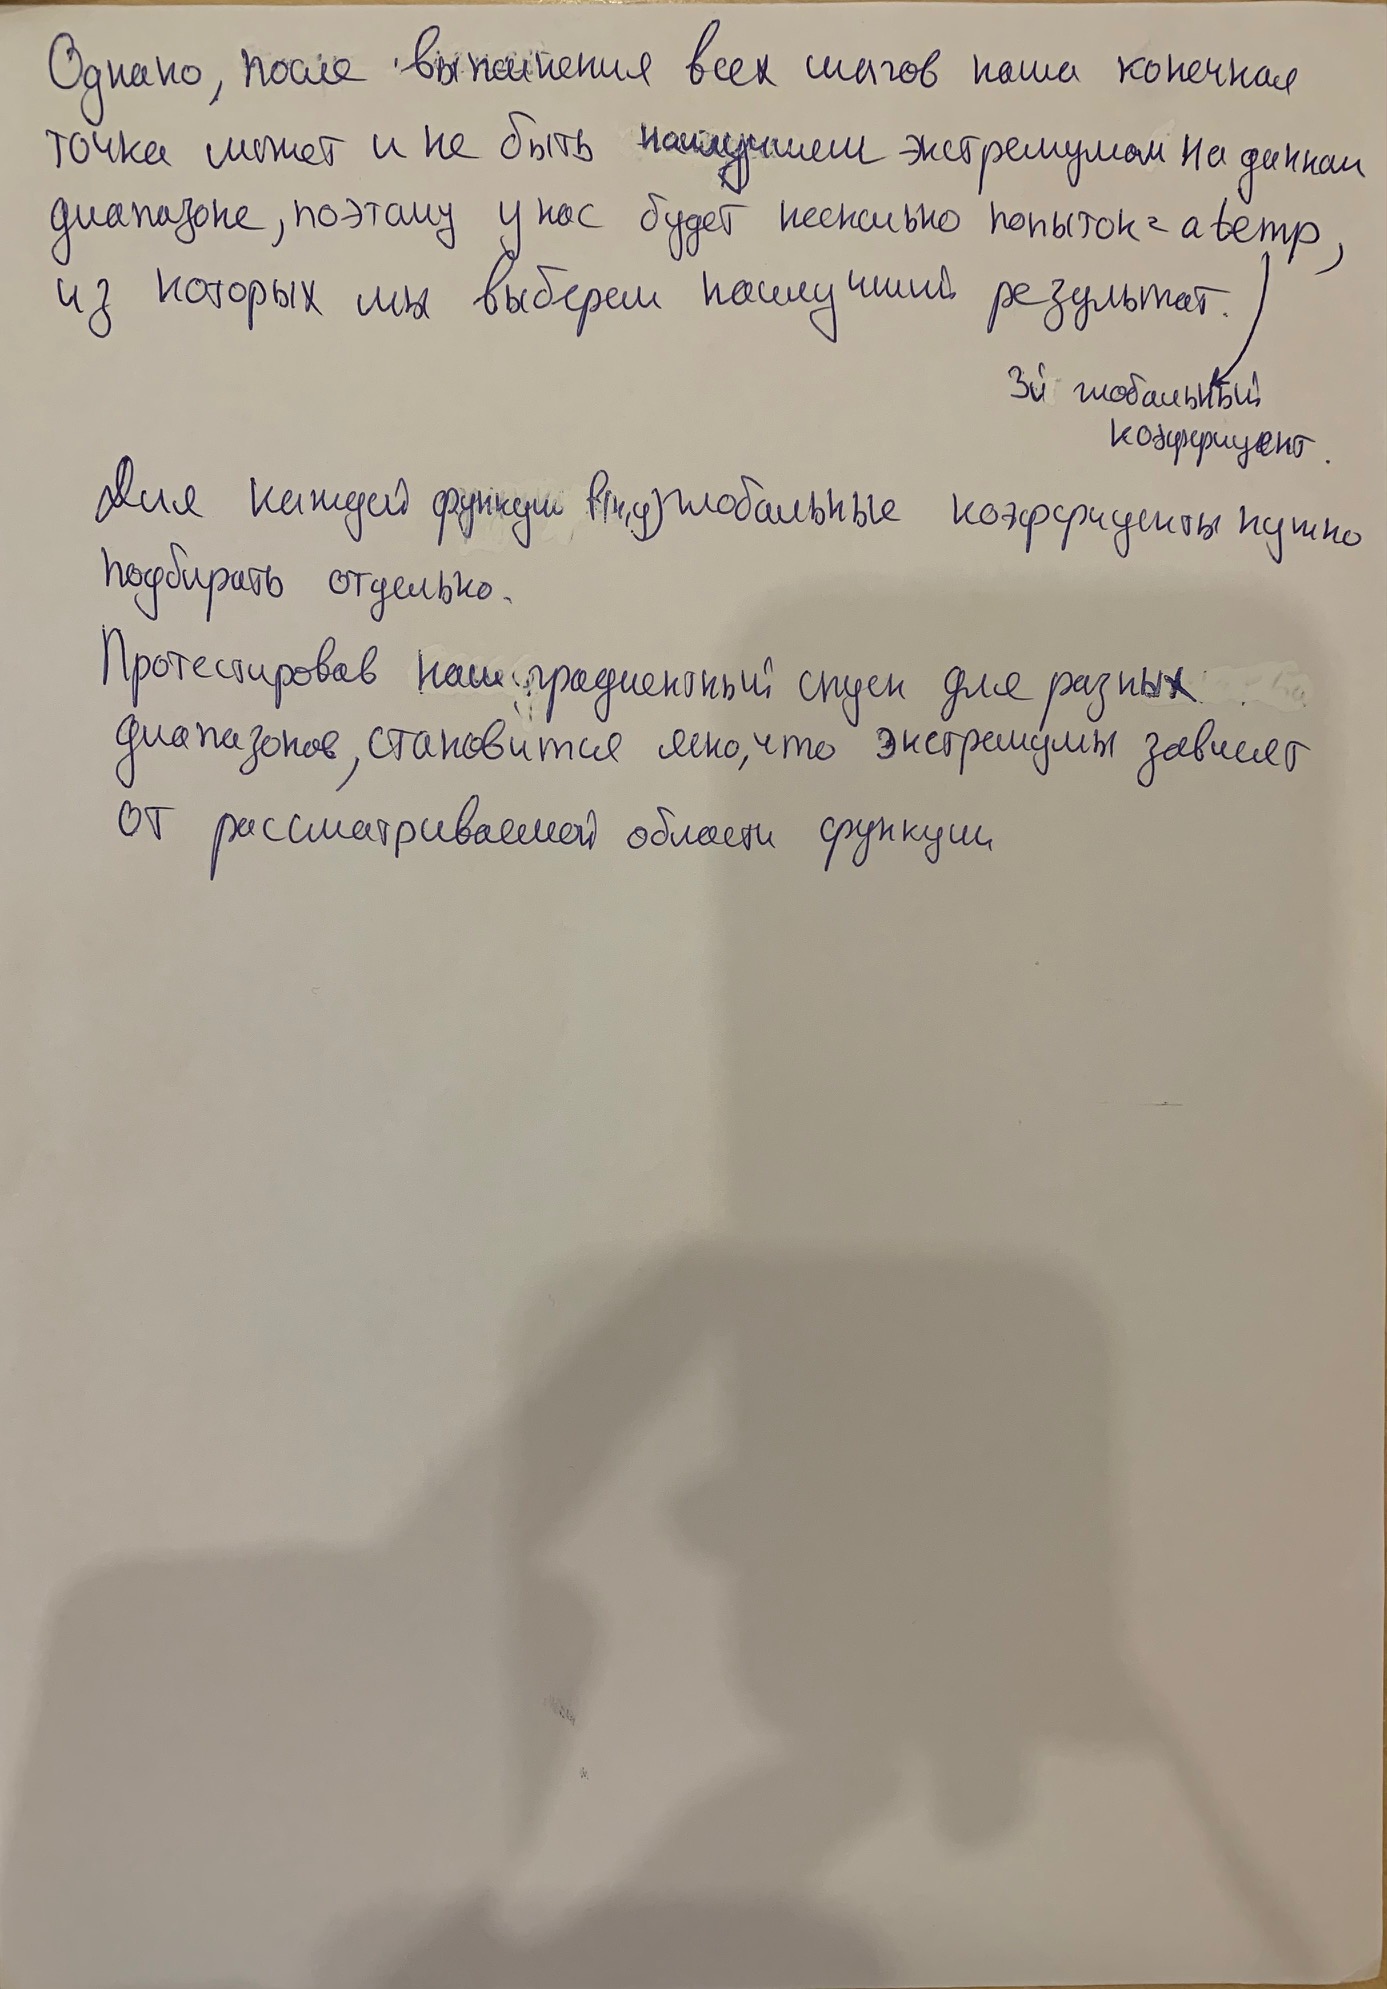 Однако, после выполнения всех шагов наша конечная
точка может и не быть наилучшем экстремумом на данном
диапазоне, поэтому у нас будет несколько попыток = atemp,
из которых мы выберем наилучший результат.
3й глобальный
коэффициент.
Для каждой функции f(x,y) глобальные коэффициенты нужно
подбирать отдельно.
Протестировав наш градиентный спуск для разных
диапазонов, становится ясно, что экстремумы зависят
от рассматриваемой области функции